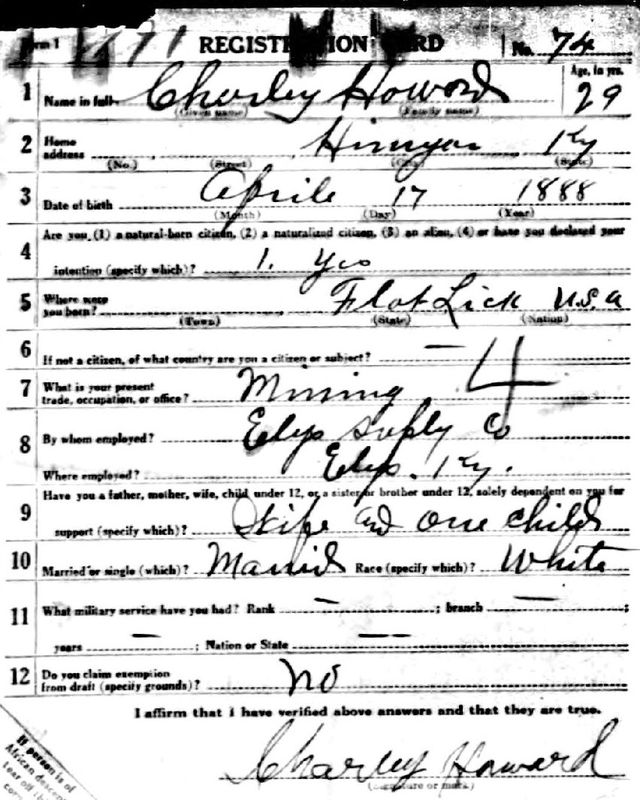 Form 1 1671 REGISTRATION CARD No. 74
1 Name in full Charley Howard Age, in yrs. 29
(Given name) (Family name)
2 Home address Himyar Ky
(No.) (Street) (City) (State)
3 Date of birth Aprile 17 1888
(Month) (Day) (Year)
4 Are you (1) a natural-born citizen, (2) a naturalized citizen, (3) an alien, (4) or have you declared your
intention (specify which)? 1. Yes
5 Where were you born? Flat Lick U.S.A
(Town) (State) (Nation)
6 If not a citizen, of what country are you a citizen or subject? —
7 What is your present trade, occupation, or office? Mining 4
8 By whom employed? Elys Suply Co
Where employed? Elys. Ky.
9 Have you a father, mother, wife, child under 12, or a sister or brother under 12, solely dependent on you for
support (specify which)? Wife and one child
10 Married or single (which)? Married Race (specify which)? White
11 What military service have you had? Rank — ; branch — ;
years — ; Nation or State — —
12 Do you claim exemption from draft (specify grounds)? No
I affirm that I have verified above answers and that they are true.
Charley Howard
(Signature or mark)
If person is of
African descent
tear off this